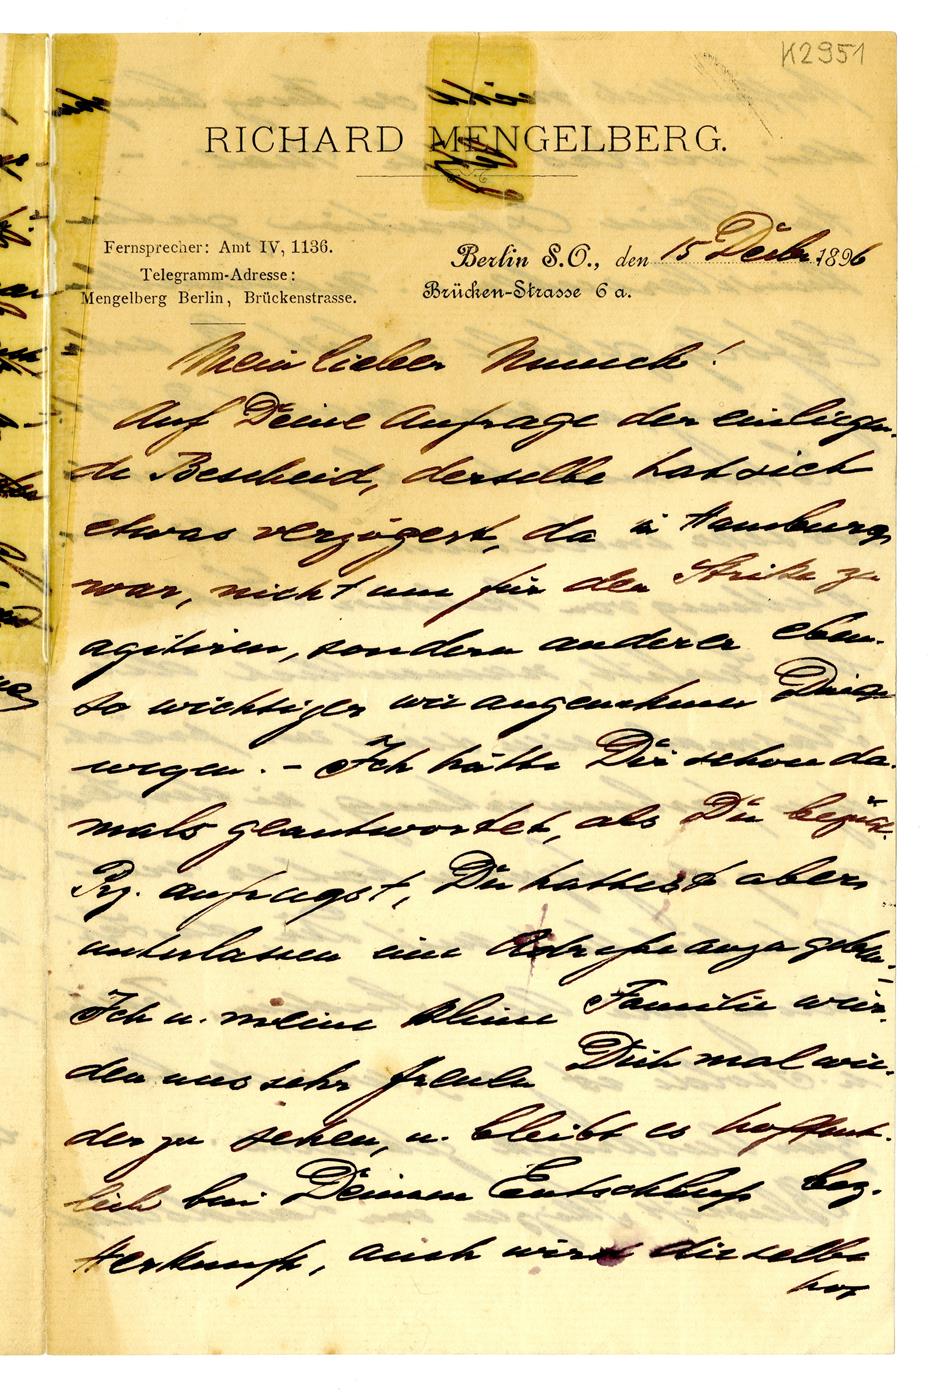 K2951
RICHARD MENGELBERG.
Fernsprecher: Amt IV, 1136.
Telegramm-Adresse:
Mengelberg Berlin, Brückenstrasse.
Berlin S.O., den 15 Decbr. 1896
Brücken-Strasse 6 a.
Mein lieber Munch!
Auf Deine Anfrage der einliegen-
de Bescheid, derselbe hat sich
etwas verzögert, da i Hamburg
war, nicht um für den Strike zu
agitiren, sondern anderer eben-
so wichtiger wie angenehmer Dinge
wegen. – Ich hätte Dir schon da-
mals geantwortet, als Du bezügl.
Prz. anfragst, Du hattest aber
unterlassen eine Adresse anzugeben,
Ich u. meine kleine Familie wür-
den uns sehr freuen Dich mal wie-
der zu sehen, u. bleibt es hoffent-
lich bei Deinem Entschluß bez.
Herkunft, auch wird dieselbe